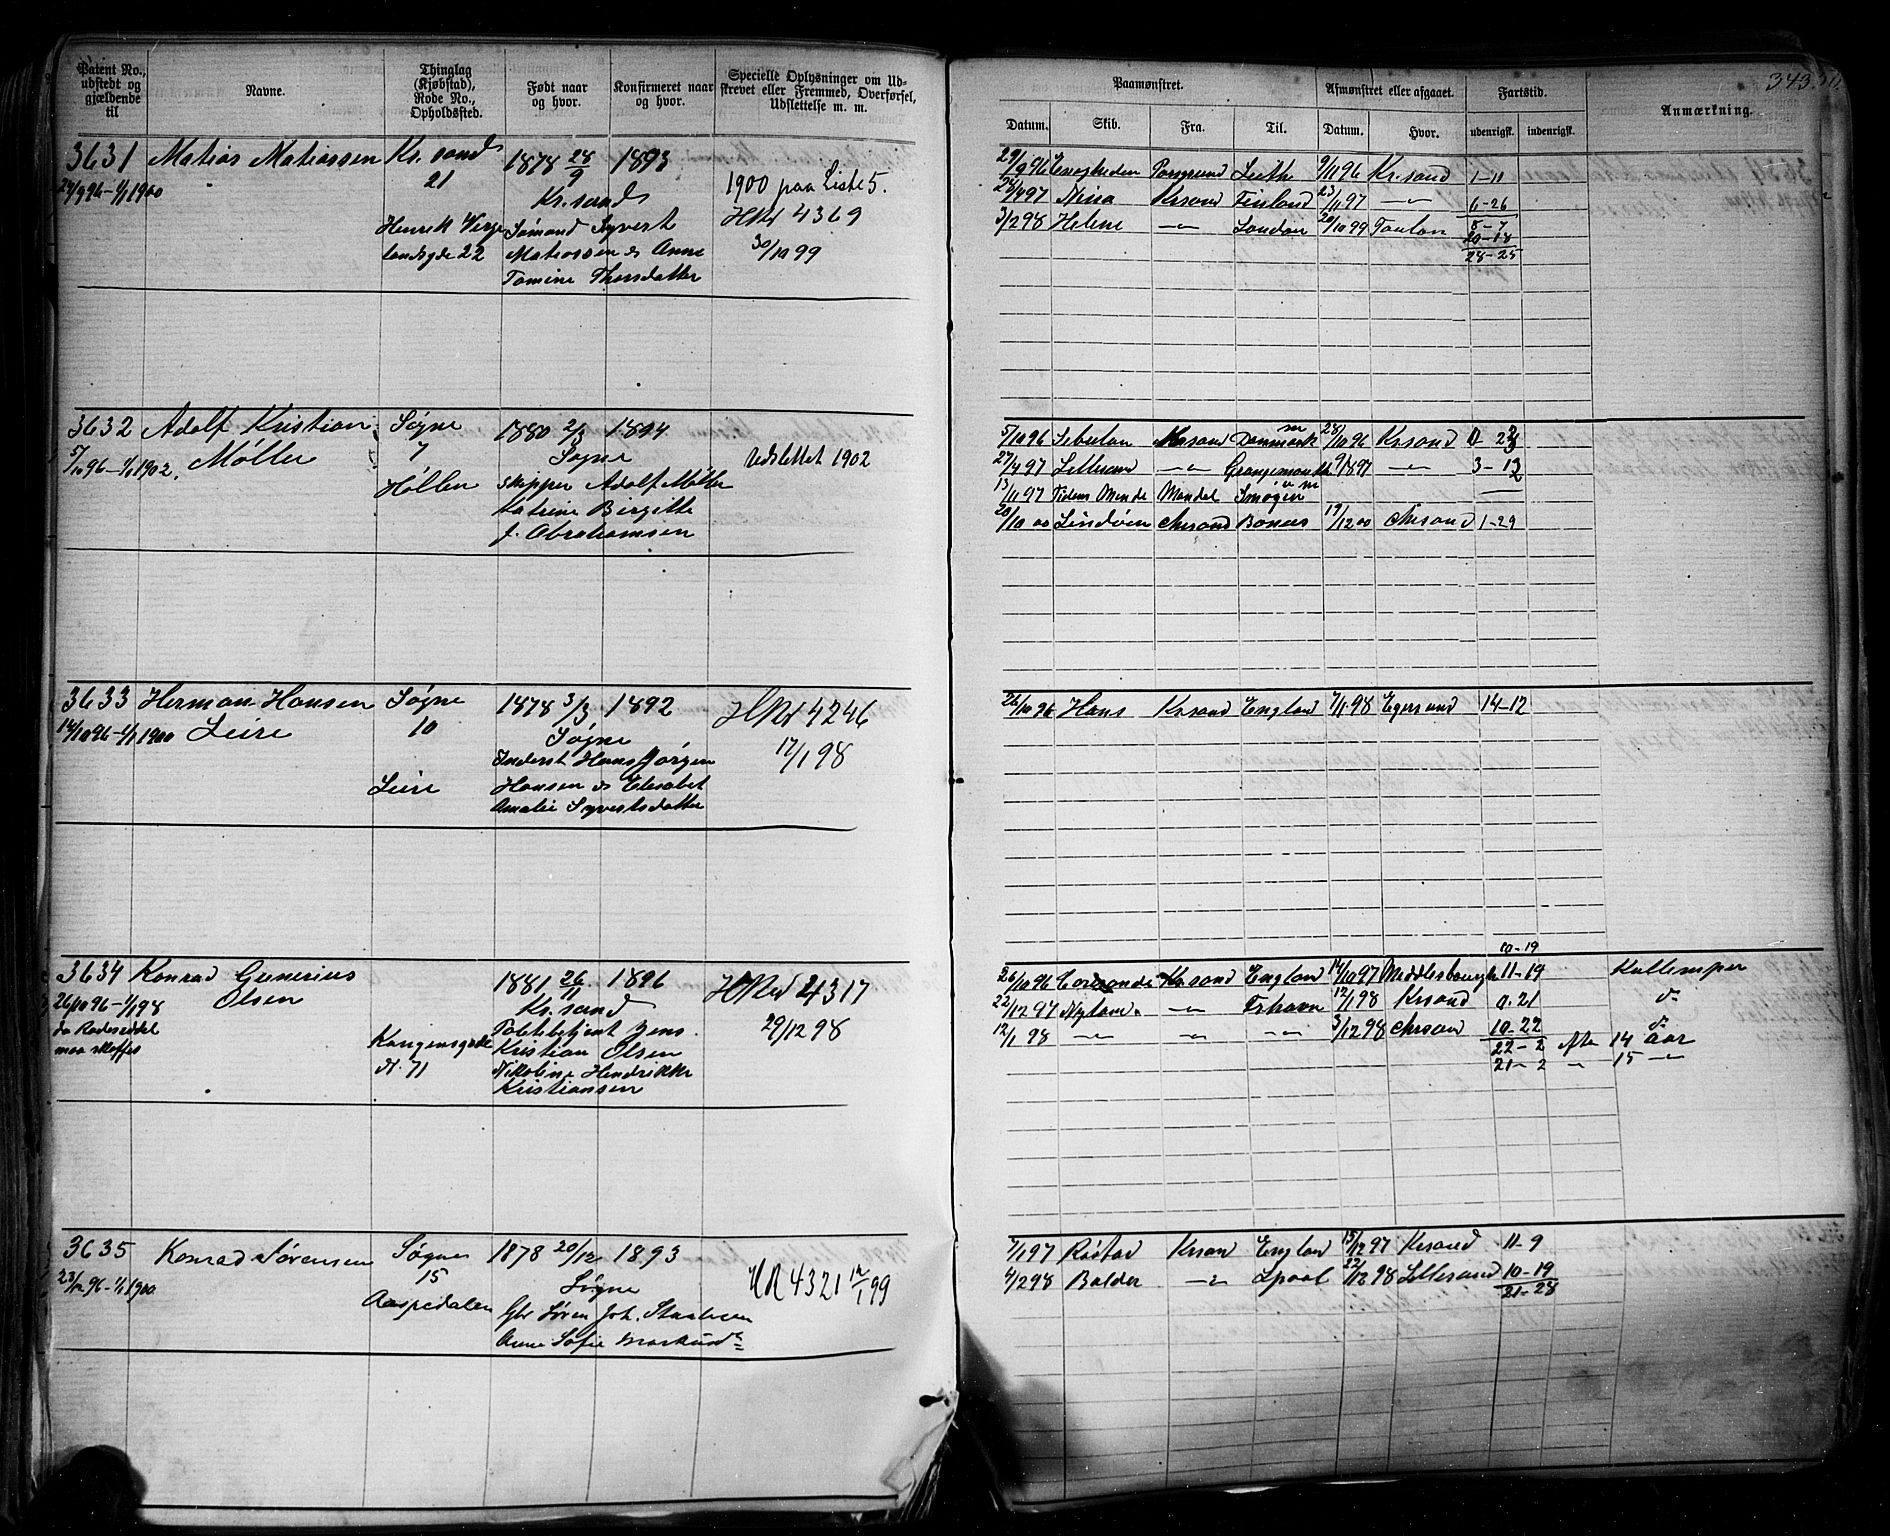 Patent No., udstedt og gjældende til
Navne.
Thinglag (Kjøbstad), Rode No., Opholdssted.
Født naar og hvor.
Konfirmeret naar og hvor.
Specielle Oplysninger om Udskrevet eller Fremmed, Overførsel, Udslettelse m. m.
3631 Matias Matiassen Kr. sand 1878 28/9 1893
24/9 96 - 1/1 1900 21 Kr. sand 1900 paa Liste 5.
Henrik Wergelandsgde 22
Sømand Syvert
Matiassen & Anne
Tomine Thorsdatter
HRul 4369
30/10 99
3632 Adolf Kristian Møller Søgne 1880 2/3 1894
5/10 96 - 1/1 1902. 7 Søgne Udslettet 1902
Høllen skipper Adolf Møller
Katrine Birgitte
f. Abrahamsen
3633 Herman Hansen Leire Søgne 1878 3/3 1892 HRul 4246
14/10 96 - 1/1 1900 10 Søgne 17/1 98
Leire
Inderst Hans Jørgen
Hansen & Elisabet
Amalie Syvertsdatter
3634 Konrad Gunerius Olsen 1881 26/11 1896 HRul 4317
26/10 96 - 1/1 98 Kr. sand 29/12 98
da Rodeseddel
maa skaffes
Kongensgade
N. 71
Jens
Kristian Olsen
Nikoline Hendrikke
Kristiansen
3635 Konrad Sørensen Søgne 1878 20/12 1893
23/12 96 - 1/1 1900 15 Søgne HR 4321 12/1 99
Aaspedalen
Gbr Søren Joh.
Anne Sofie
343.
Paamønstret.
Afmønstret eller afgaaet.
Fartstid.
Anmærkning.
Datum. Skib. Fra. Til. Datum. Hvor. udenrigsk. indenrigsk.
29/9 96 Enogheden Porsgrund Leith 9/11 96 Kr. sand 1-11
24/4 97 Nina Krsand Finland 23/11 97 -"- 6-26
3/2 98 Helene -"- London 20/10 99 Toulon 8-7
20-18
28-25
5/10 96 Sebulon Krsand Danmark 28/10 96 Krsand 0-23
27/4 97 Lillesand -"- Grangemouth 9/8 97 -"- 3-12
13/11 97 Tidens Minde Mandal Smøgen
20/10 00 Lindøen Chrsand Boness 19/12 00 Chrsand 1-29
26/10 96 Hans Krsand England 7/1 98 Egersund 14-12
10-19
26/10 96 Krsand England 14/10 97 Middlesbourgh 11-19 Kullemper
22/12 97 Nylam. -"- Frhavn 12/1 98 Krsand 0.21 do
12/1 98 -"- -"- -"- 3/12 98 Chrsand 10-22 do
22-2 efter 14 Aar
21-2 " 15 -"-
7/1 97 Røstad Krsan England 15/12 97 Krsand 11-9
4/2 98 Balder -"- Lpool 22/12 98 Lillesand 10-19
21-28